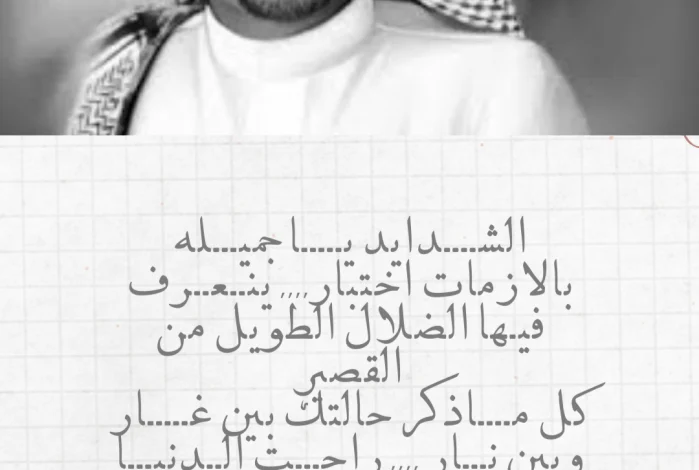 الشـــدايد يـــا جميـــله
بالازمات اختبار,,,, ينـعـرف
فيـها الضلال الطويل من
القصير
كل مـــاذكر حالتك بين غـــار
وبين نـــار,,,, راحـــت الـدنيـــا